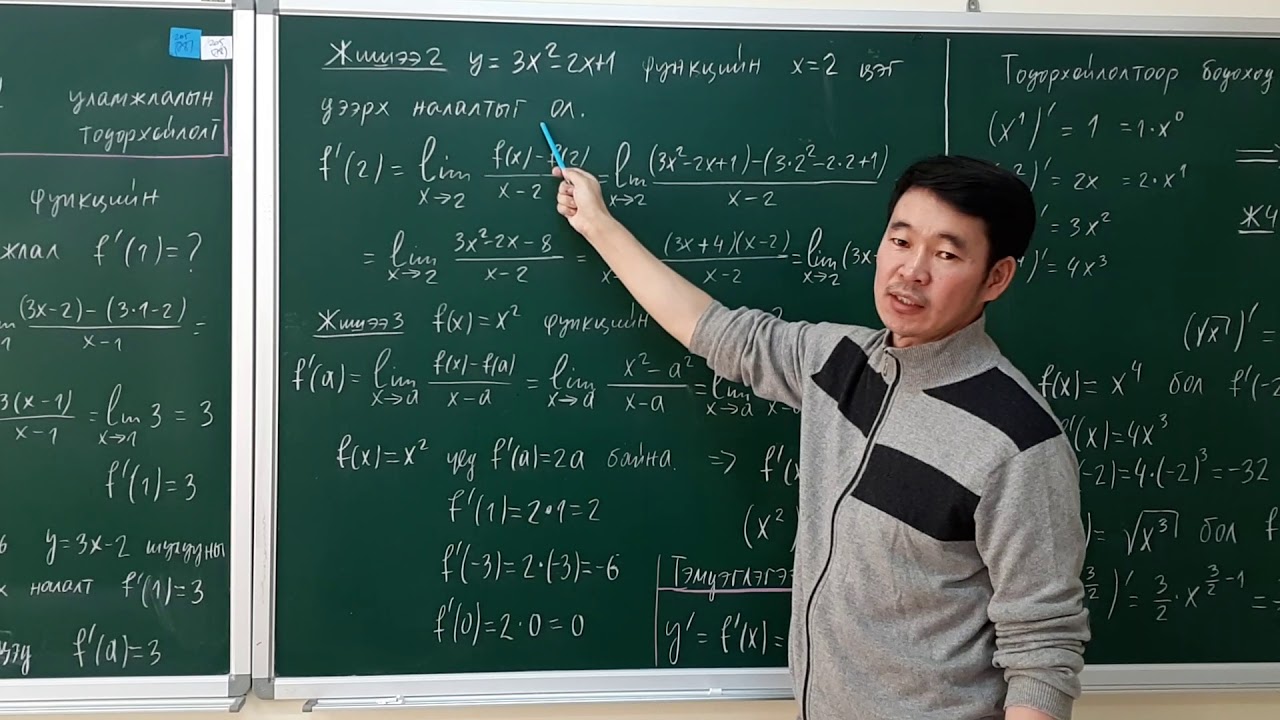 уламжлалын
тодорхойлолт
функцийн
жлал f'(1)=?
(3x-2)-(3·1-2)/x-1 =
3(x-1)/x-1 = lim x→1 3 = 3
f'(1)=3
y=3x-2 шулууны
налалт f'(1)=3
f'(a)=3
Жишээ 2 y=3x²-2x+1 функцийн x=2 цэг
дээрх налалтыг ол.
f'(2)= lim x→2 f(x)-f(2)/x-2 = lim x→2 (3x²-2x+1)-(3·2²-2·2+1)/x-2
= lim x→2 3x²-2x-8/x-2 = (3x+4)(x-2)/x-2 = lim x→2 (3x
Жишээ 3 f(x)=x² функцийн
f'(a)= lim x→a f(x)-f(a)/x-a = lim x→a x²-a²/x-a = lim x→a
f(x)=x² үед f'(a)=2a байна. => f'(x
f'(1)=2·1=2
(x²)
f'(-3)=2·(-3)=-6
f'(0)=2·0=0
Тэмдэглэгээ
y'=f'(x)=
Тодорхойлолтоор бодоход
(x¹)'=1 =1·x⁰
2)'=2x =2·x¹
'=3x²
)'=4x³
Ж4
(√x)'=
f(x)=x⁴ бол f'(-2
f'(x)=4x³
(-2)=4·(-2)³=-32
)=√x³ бол f
3/2)'=3/2·x^3/2-1 =